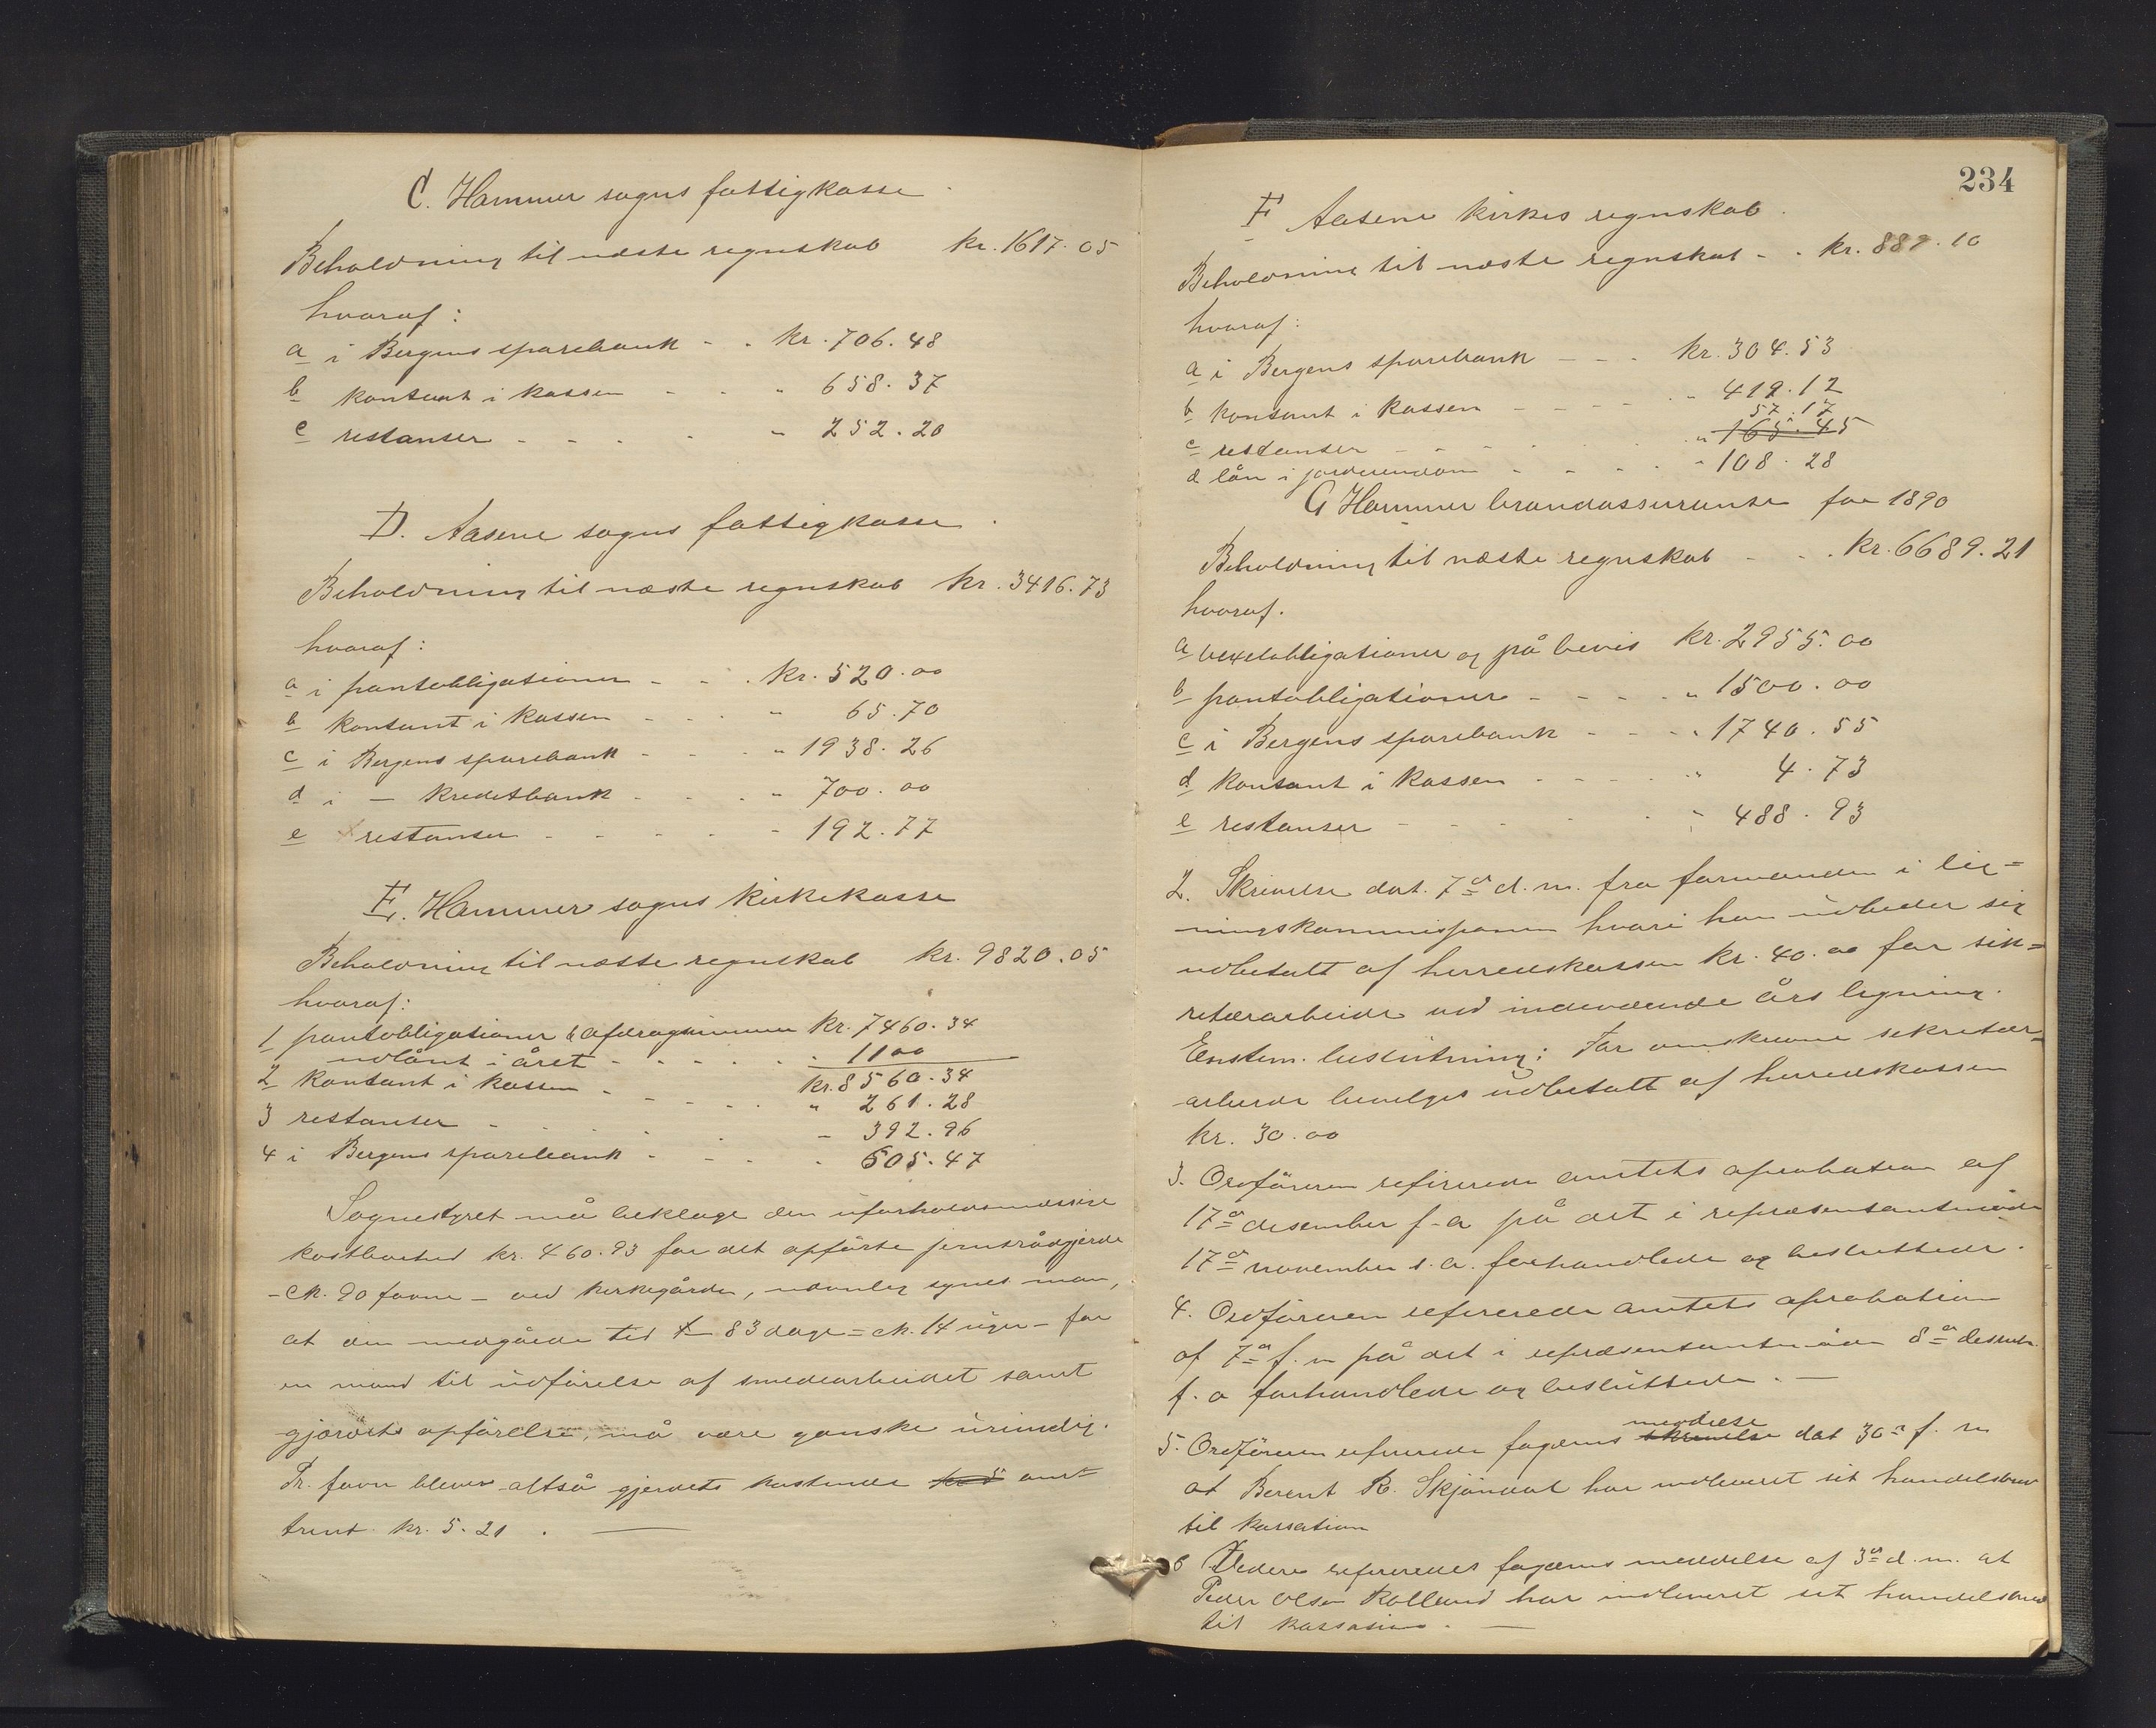 C. Hammer sogns fattigkasse
Beholdning til næste regnskab kr. 1617.05
hvoraf:
a i Bergens sparebank - - kr. 706.48
b kontant i kassen - - " 658.37
c restanser - - - - " 252.20
D. Aasene sogns fattigkasse.
Beholdning til næste regnskab kr. 3416.73
hvoraf:
a i pantobligationer - - kr. 520.00
b kontant i kassen - - - " 65.70
c i Bergens sparebank - - - " 1938.26
d i — kreditbank - - - " 700.00
e restanser - - - - - 192.77
E. Hammer sogns kirkekasse
Beholdning til næste regnskab kr. 9820.05
hvoraf:
1 pantobligationer & afdragsummer kr. 7460.34
udlånt i året - - - - - " 1100
kr. 8560.34
2 kontant i kassen - - - - " 261.28
3 restanser - - - - - 392.96
4 i Bergens sparebank - - - - 605.47
Sognestyret må beklage den uforholdsmæssige
kostbarhed kr. 460.93 for det opførte jerntrådgjerde
- ck. 90 favne - ved kirkegården, navnlig synes man,
at den medgåede tid - 83 dage = ck. 14 uger - for
en mand til udførelse af smedearbeidet samt
gjærdets opførelse, må være ganske urimelig.
Pr. favn bliver altså gjerdets kostende om-
trent kr. 5.21. —
234
F Aasene kirkes regnskab.
Beholdning til næste regnskab - - kr. 889.10
hvoraf:
a i Bergens sparebank - - - kr. 304.53
b kontant i kassen - - - - - " 419.12
57.17
c restanser - - - - - " 165.45
d lån i jordeiendom - - - - " 108.28
G Hammer brandassuranse for 1890
Beholdning til næste regnskab - - . kr. 6689.21
hvoraf.
a vexelobligationer og på bevis kr. 2955.00
b pantobligationer - - - - " 1500.00
c i Bergens sparebank - - - " 1740.55
d kontant i kassen - - - - " 4.73
e restanser - - - - - " 488.93
2. Skrivelse dat. 7de d.m. fra formanden i lig-
ningskommissionen hvori han udbeder sig
udbetalt af herredskassen kr. 40.00 for sek=
retærarbeide ved indeværende års ligning.
Enstem. beslutning: For omskrevne sekretær-
arbeide bevilges udbetalt af herredskassen
kr. 30.00
3. Ordføreren refererede amtets aprobation af
17de desember f-a på det i repræsentantmøde
17de november s.a. forhandlede og besluttede.
4. Ordføreren refererede amtets aprobation
af 7de f.m på det i repræsentantmøde 8de desemb.
f.a forhandlede og besluttede. —
meddelse
5. Ordføreren refererede fogdens skrivelse dat 30te f. m
at Berent R. Skjøndal har indleveret sit handelsbrev
til kassation
6 Videre refereredes fogdens meddelse af 3de d.m. at
Peder Olsen Rolland har indleveret sit handelsbrev
til kassasion. —